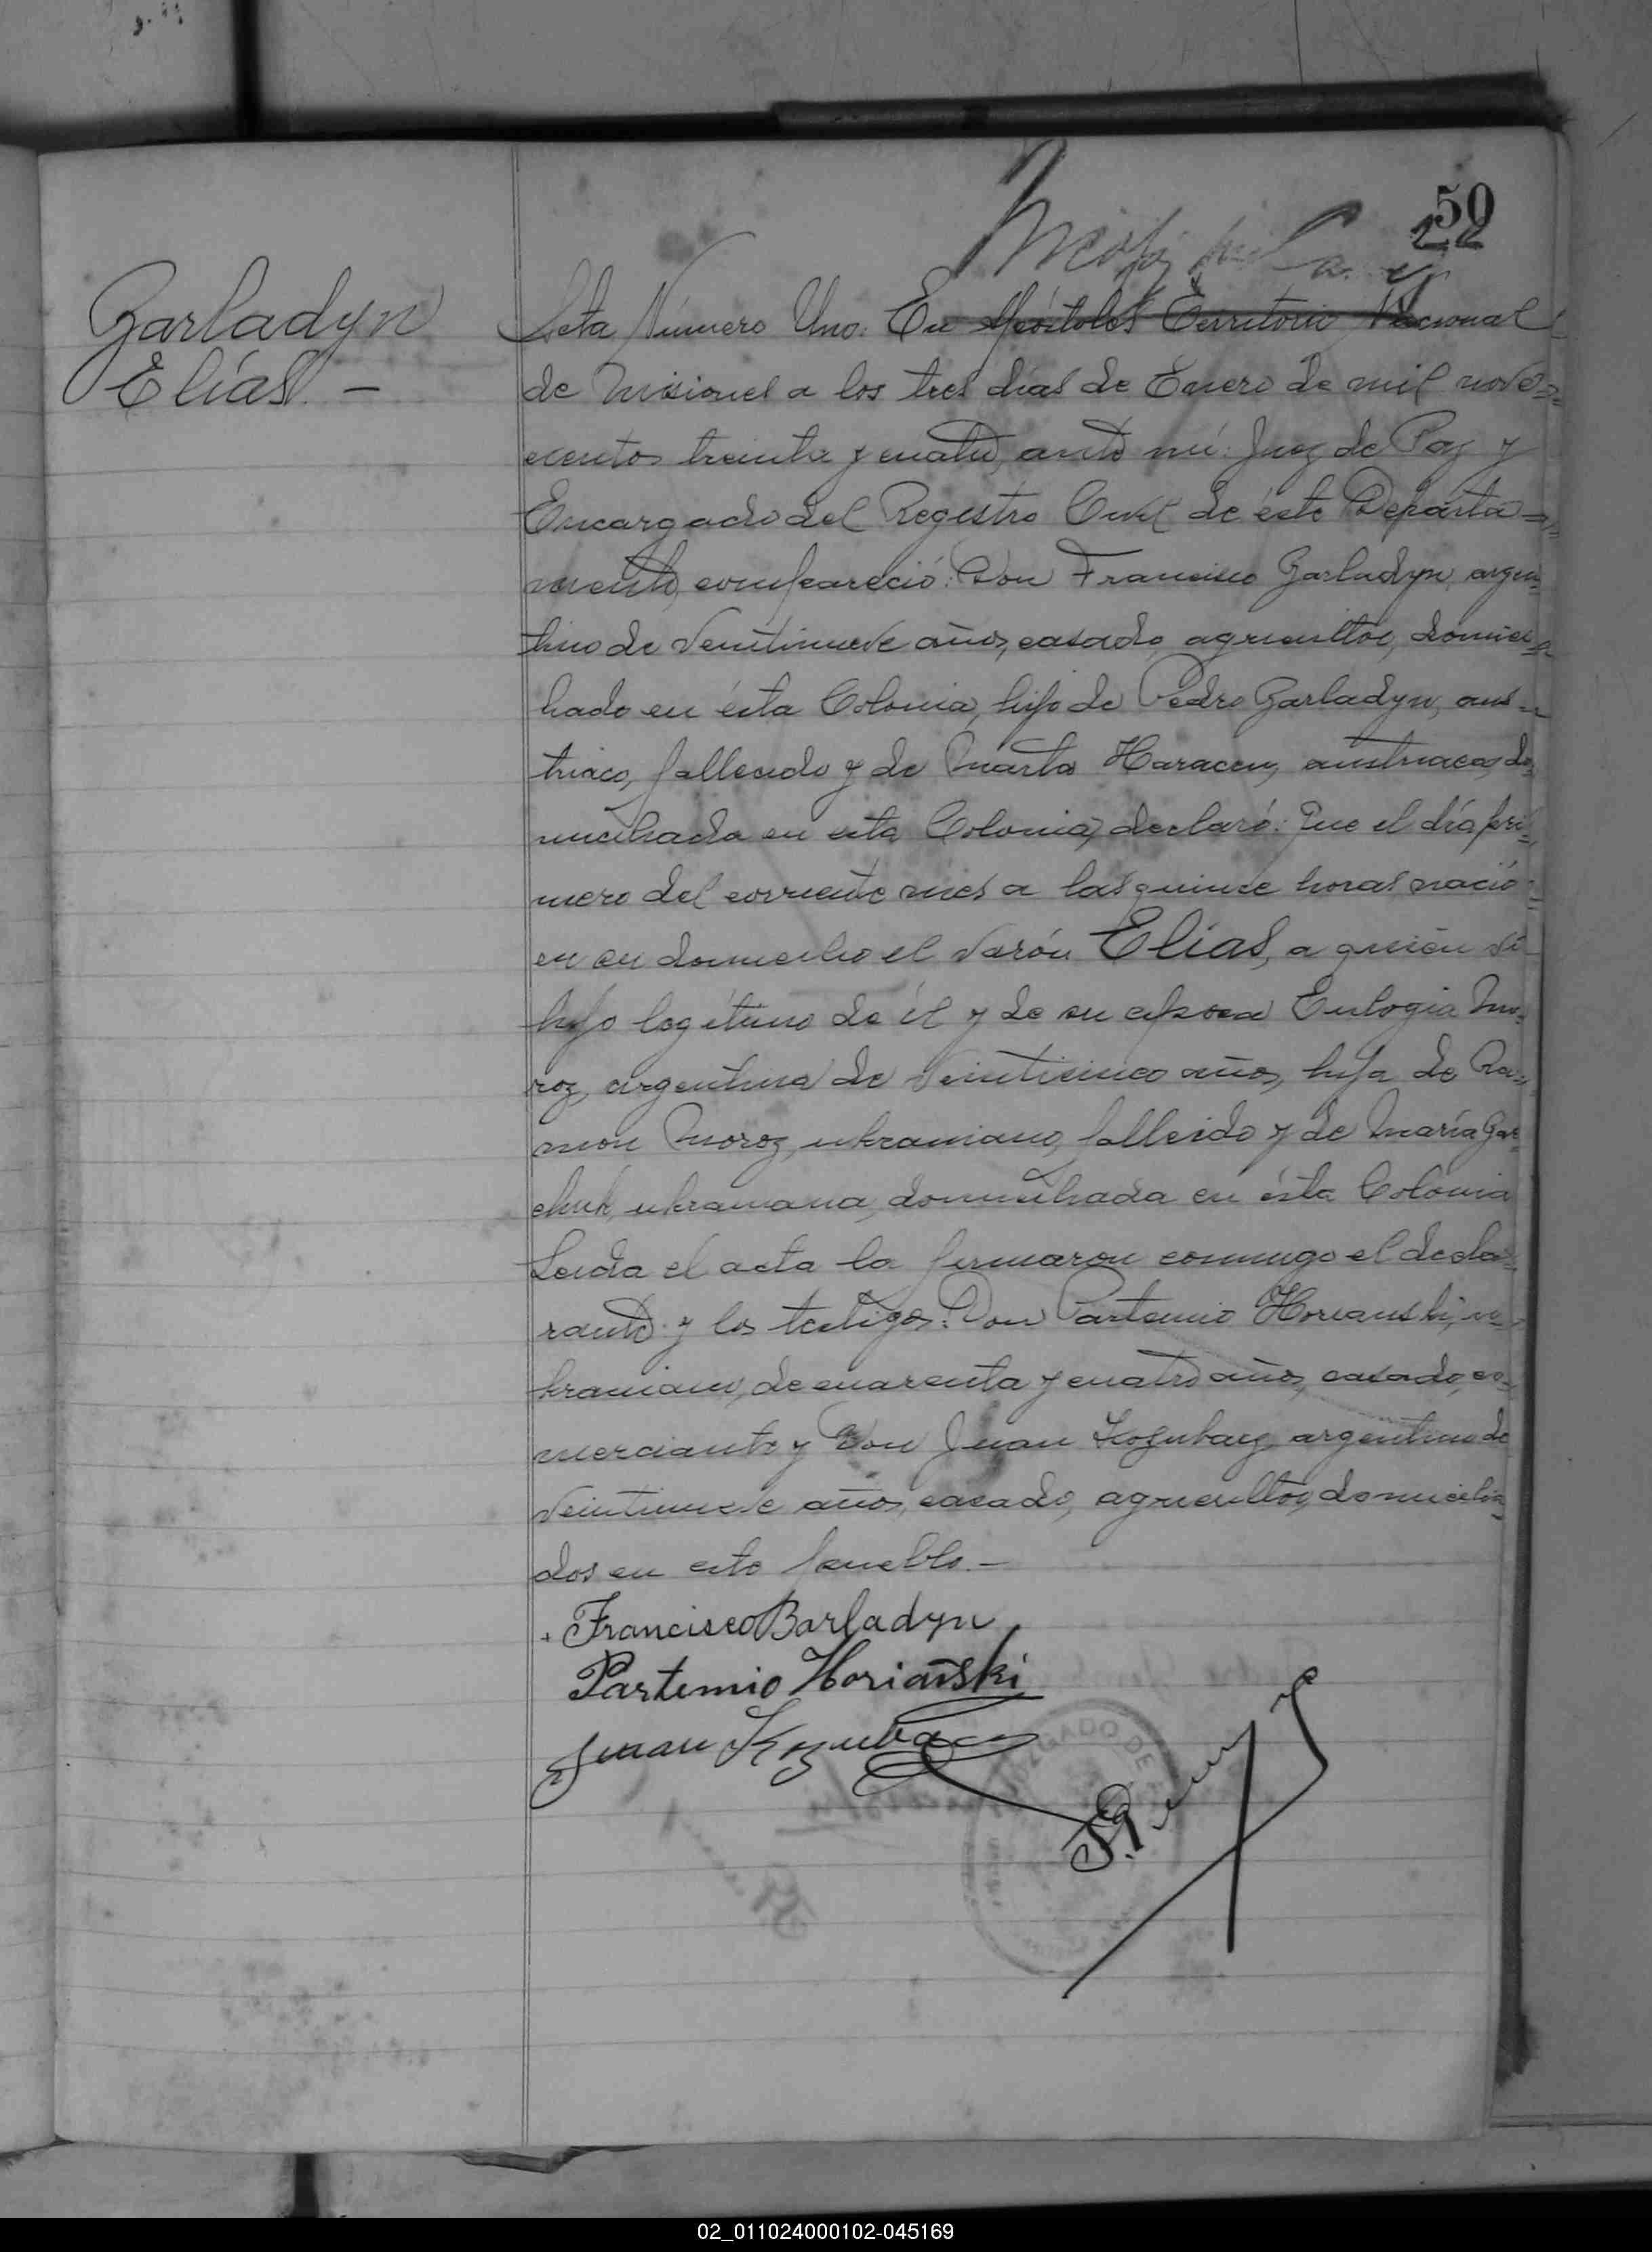 50
22
Garladyn
Elías. -
Acta Número Uno: En Apóstoles Territorio Nacional
de Misiones a los tres días de Enero de mil nove=
cientos treinta y cuatro, ante mí: Juez de Paz y
Encargado del Registro Civil de éste Departa=
mento, compareció: Don Francisco Garladyn, argen=
tino de veintinueve años, casado, agricultor, domici=
liado en ésta Colonia, hijo de Pedro Garladyn, aus=
triaco, fallecido y de Marta Haracen, austriaca, do=
miciliada en esta Colonia, declaró: Que el día pri=
mero del corriente mes a las quince horas nació
en su domicilio el varón Elías, a quién vi
hijo legítimo de él y de su esposa Eulogia Mo=
roz, argentina de veinticinco años, hija de Ra=
mon Moroz, ukraniano, fallecido y de María Gas
chuk, ukraniana, domiciliada en ésta Colonia
Leída el acta la firmaron conmigo el decla=
rante y los testigos: Don Partemio Horianski, u=
kraniano, de cuarenta y cuatro años, casado, co=
merciante y Don Juan Kozubacz, argentino de
veintinueve años, casado, agricultor, domicilia=
dos en este pueblo. -
Francisco Barladyn
Partemio Horiański
Juan Kozubac
JUZGADO DE